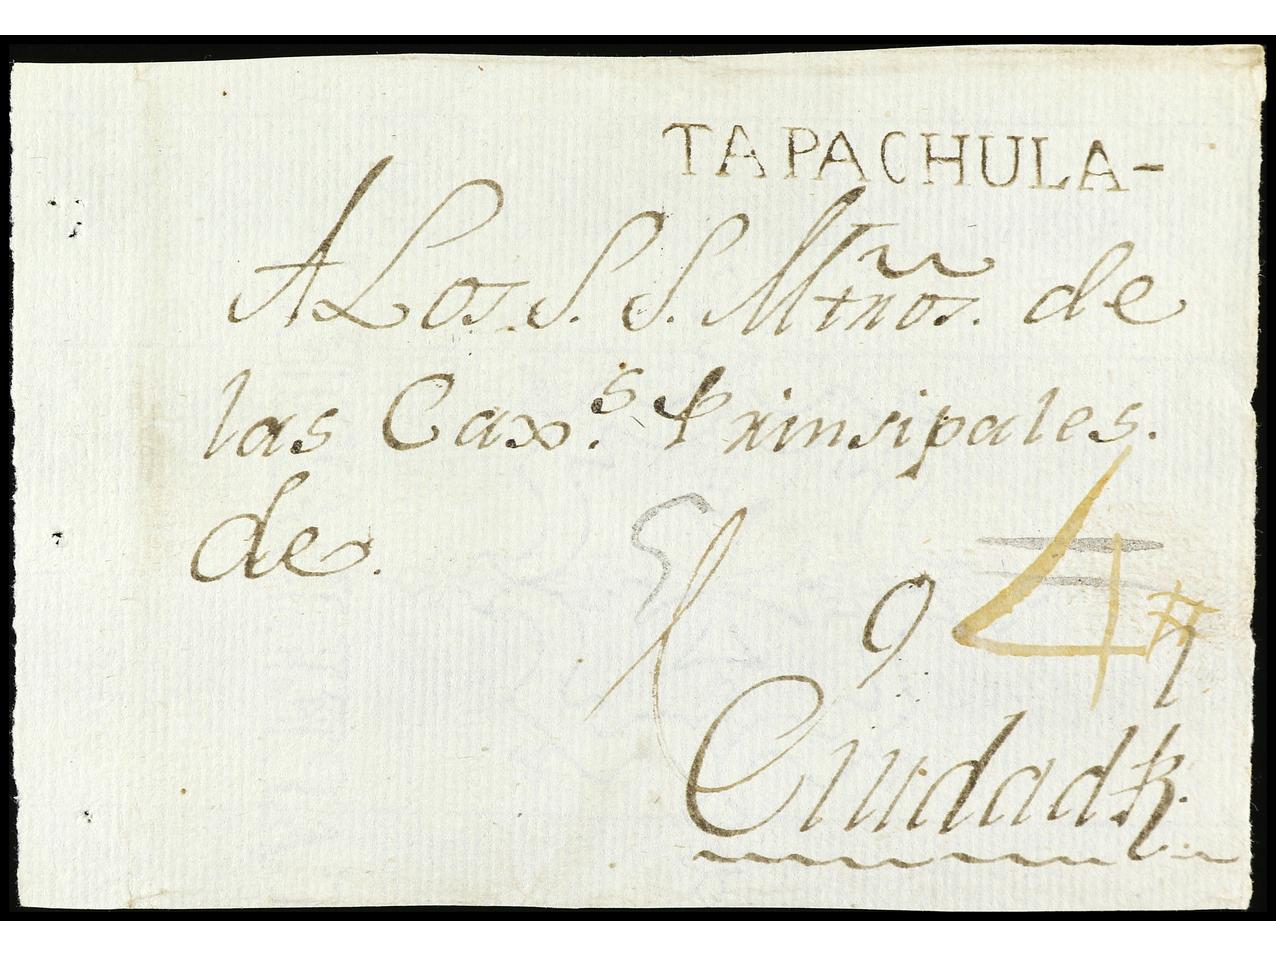 TAPACHULA-
A Los S.S. Mtrños. de
las Cax.s Prinsipales.
de.
9 4
Ciudad R.